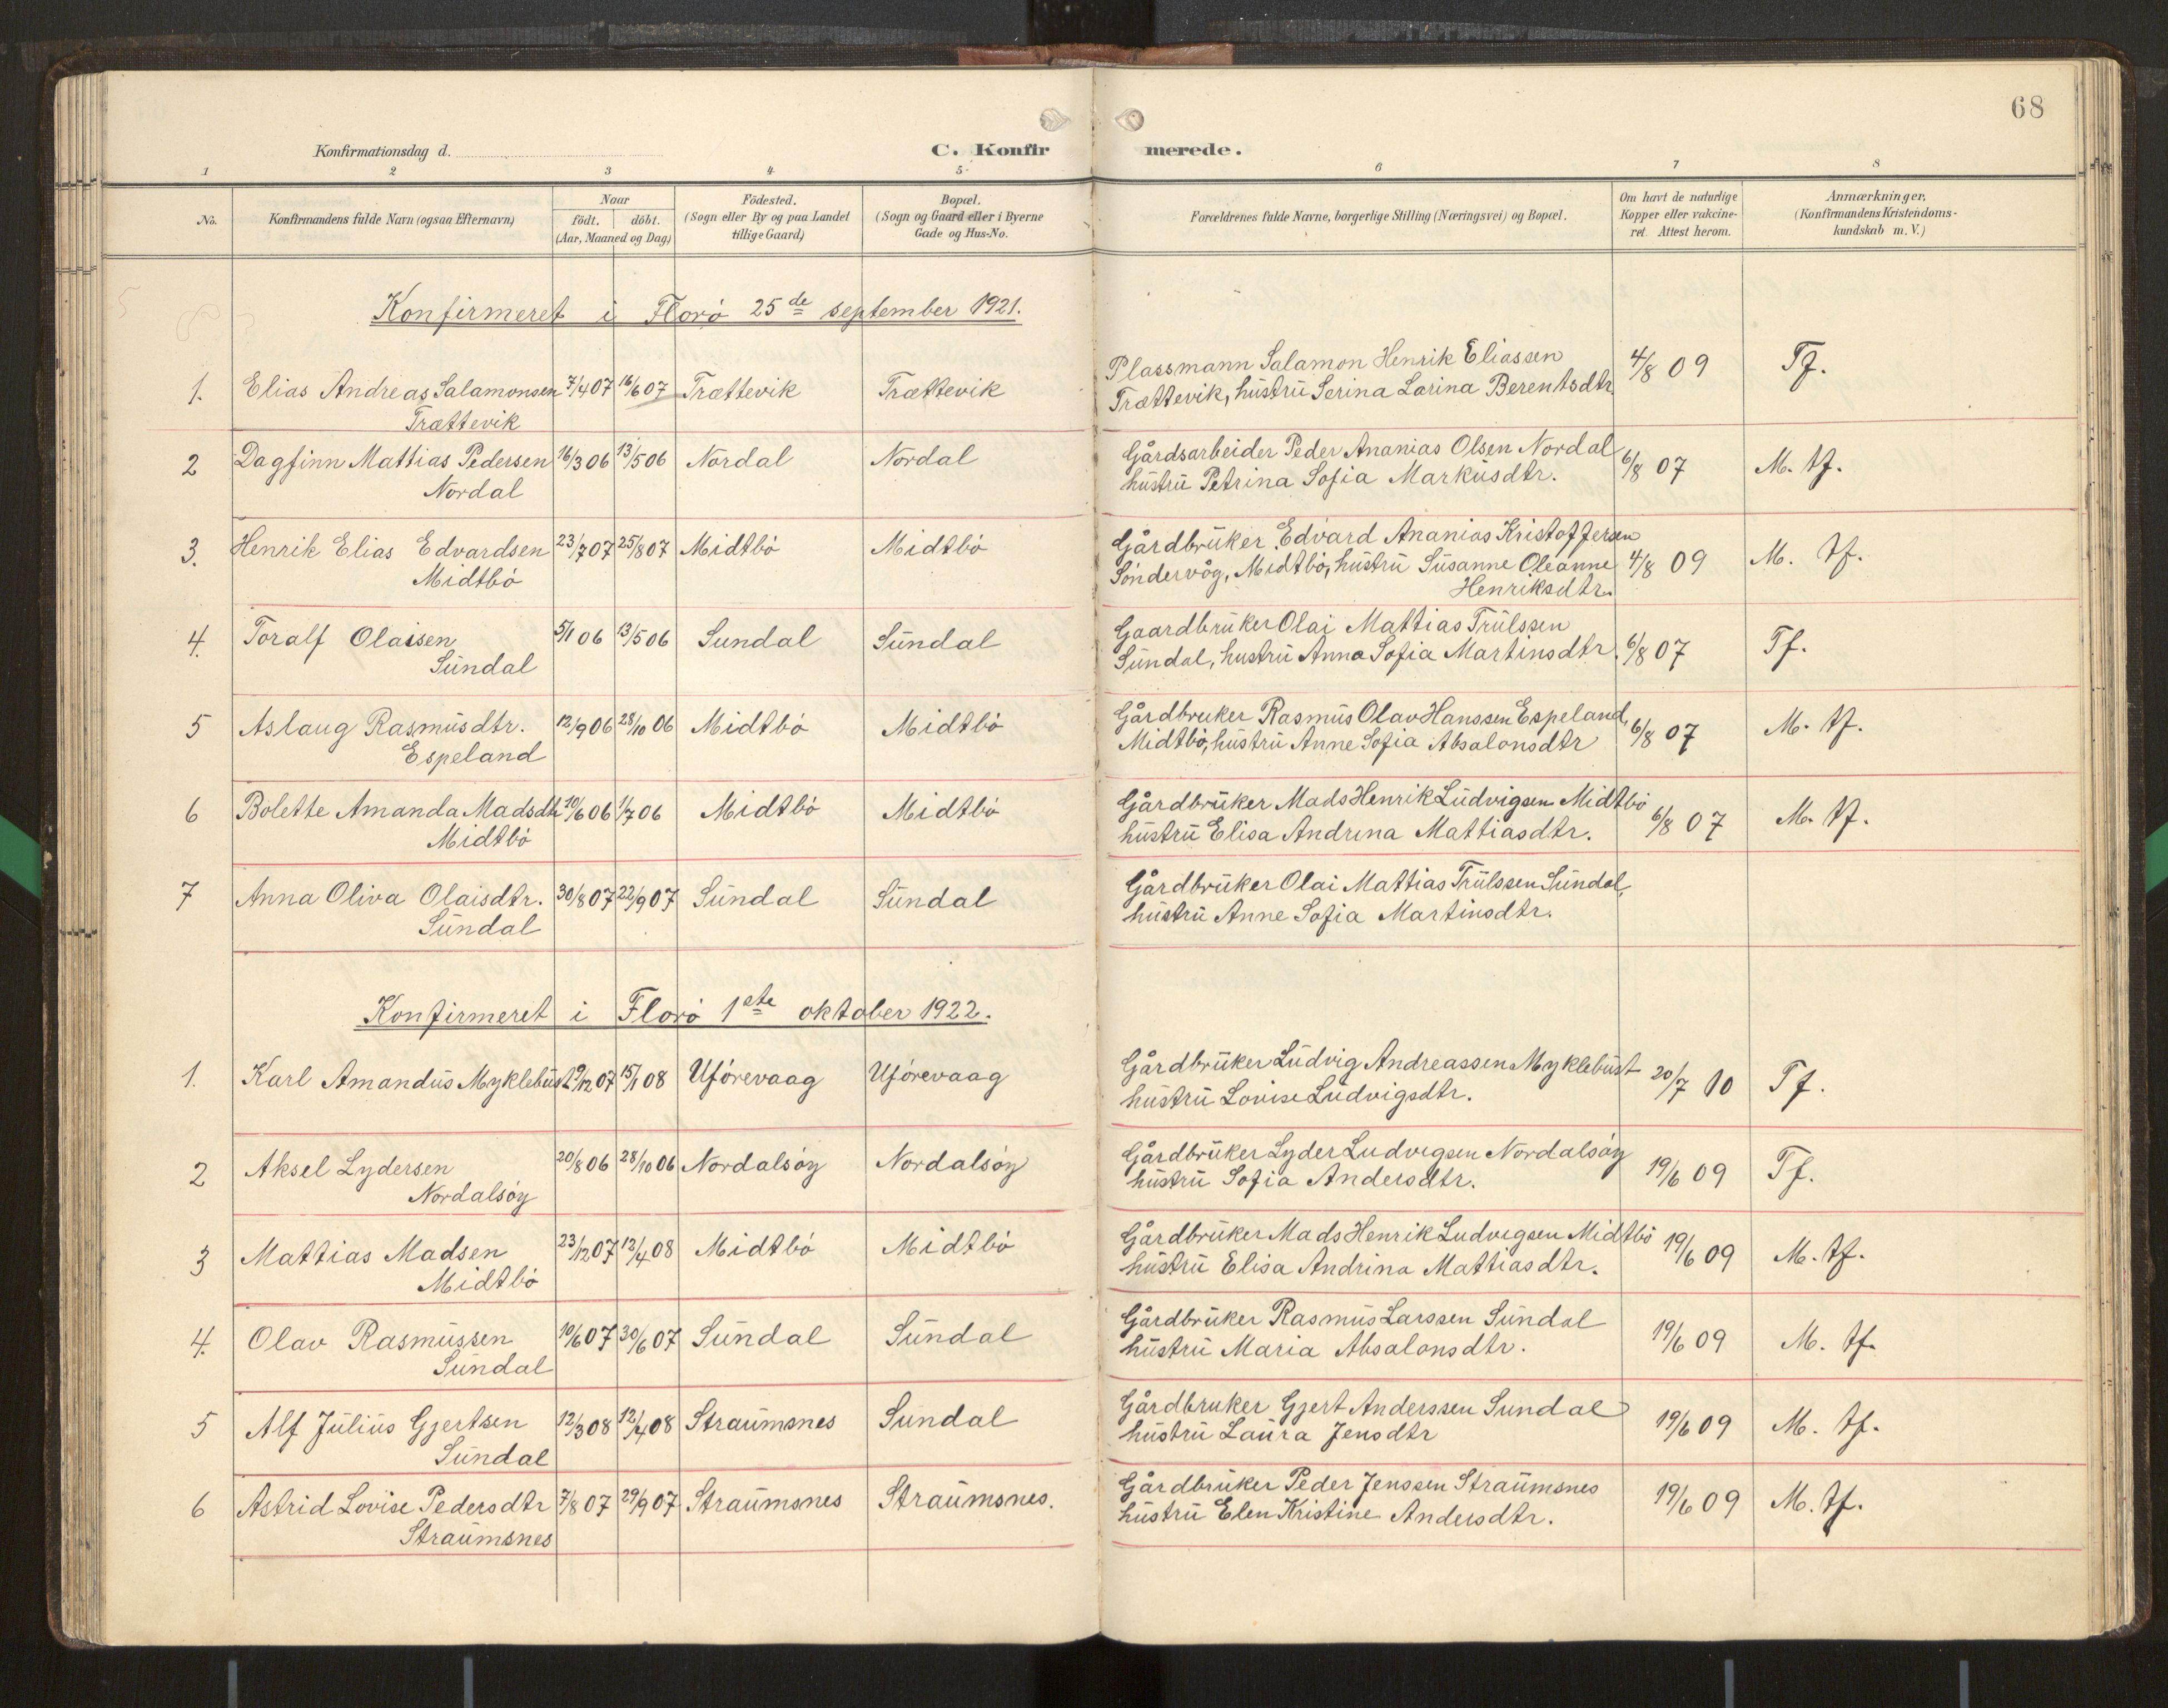 68
Konfirmationsdag d.
C. Konfirmerede.
1 2 3 4 5 6 7 8
No.
Konfirmandens fulde Navn (ogsaa Efternavn)
Naar
födt. döbt.
(Aar, Maaned og Dag)
Födested.
(Sogn eller By og paa Landet
tillige Gaard)
Bopæl.
(Sogn og Gaard eller i Byerne
Gade og Hus-No.
Forældrenes fulde Navne, borgerlige Stilling (Næringsvei) og Bopæl.
Om havt de naturlige
Kopper eller vakcine-
ret. Attest herom.
Anmærkninger,
(Konfirmandens Kristendoms-
kundskab m. V.)
Konfirmeret i Florö 25de september 1921.
1. Elias Andreas Salamonsen 7/4 07 16/6 07 Trættevik Trættevik
Trættevik
Plassmann Salamon Henrik Eliassen 4/8 09 Tf.
Trættevik, hustru Serina Larina Berentsdtr.
2 Dagfinn Mattias Pedersen 16/3 06 13/5 06 Nordal Nordal
Nordal
Gårdsarbeider Peder Ananias Olsen Nordal 6/8 07 M. tf.
hustru Petrina Sofia Markusdtr.
3. Henrik Elias Edvardsen 23/7 07 25/8 07 Midtbö Midtbö
Midtbö
Gårdbruker Edvard Ananias Kristoffersen
Söndervåg, Midtbö, hustru Susanne Oleanne 4/8 09 M. tf.
Henriksdtr.
4. Toralf Olaisen 5/1 06 13/5 06 Sundal Sundal
Sundal
Gaardbruker Olai Mattias Trulssen
Sundal, hustru Anna Sofia Martinsdtr. 6/8 07 Tf.
5 Aslaug Rasmusdtr. 12/9 06 28/10 06 Midtbö Midtbö
Espeland
Gårdbruker Rasmus Olav Hanssen Espeland,
Midtbö, hustru Anne Sofia Absalonsdtr 6/8 07 M. tf.
6 Bolette Amanda Madsdtr 10/6 06 1/7 06 Midtbö Midtbö
Midtbö
Gårdbruker Mads Henrik Ludvigsen Midtbö
hustru Elisa Andrina Mattiasdtr. 6/8 07 M. tf.
7 Anna Oliva Olaisdtr. 30/8 07 22/9 07 Sundal Sundal
Sundal
Gårdbruker Olai Mattias Trulssen Sundal,
hustru Anne Sofia Martinsdtr.
Konfirmeret i Florö 1ste oktober 1922.
1. Karl Amandus Myklebust 29/12 07 15/1 08 Uförevaag Uförevaag
Gårdbruker Ludvig Andreassen Myklebust 20/7 10 Tf.
hustru Lovise Ludvigsdtr.
2 Aksel Lydersen 20/8 06 28/10 06 Nordalsöy Nordalsöy
Nordalsöy
Gårdbruker Lyder Ludvigsen Nordalsöy
hustru Sofia Andersdtr. 19/6 09 Tf.
3 Mattias Madsen 23/12 07 12/4 08 Midtbö Midtbö
Midtbö
Gårdbruker Mads Henrik Ludvigsen Midtbö 19/6 09 M. tf.
hustru Elisa Andrina Mattiasdtr.
4. Olav Rasmussen 10/6 07 30/6 07 Sundal Sundal
Sundal
Gårdbruker Rasmus Larssen Sundal
hustru Maria Absalonsdtr. 19/6 09 M. tf.
5 Alf Julius Gjertsen 12/3 08 12/4 08 Straumsnes Sundal
Sundal
Gårdbruker Gjert Anderssen Sundal
hustru Laura Jensdtr 19/6 09 M. tf.
6 Astrid Lovise Pedersdtr 7/8 07 29/9 07 Straumsnes Straumsnes.
Straumsnes
Gårdbruker Peder Jenssen Straumsnes 19/6 09 M. tf.
hustru Elen Kristine Andersdtr.